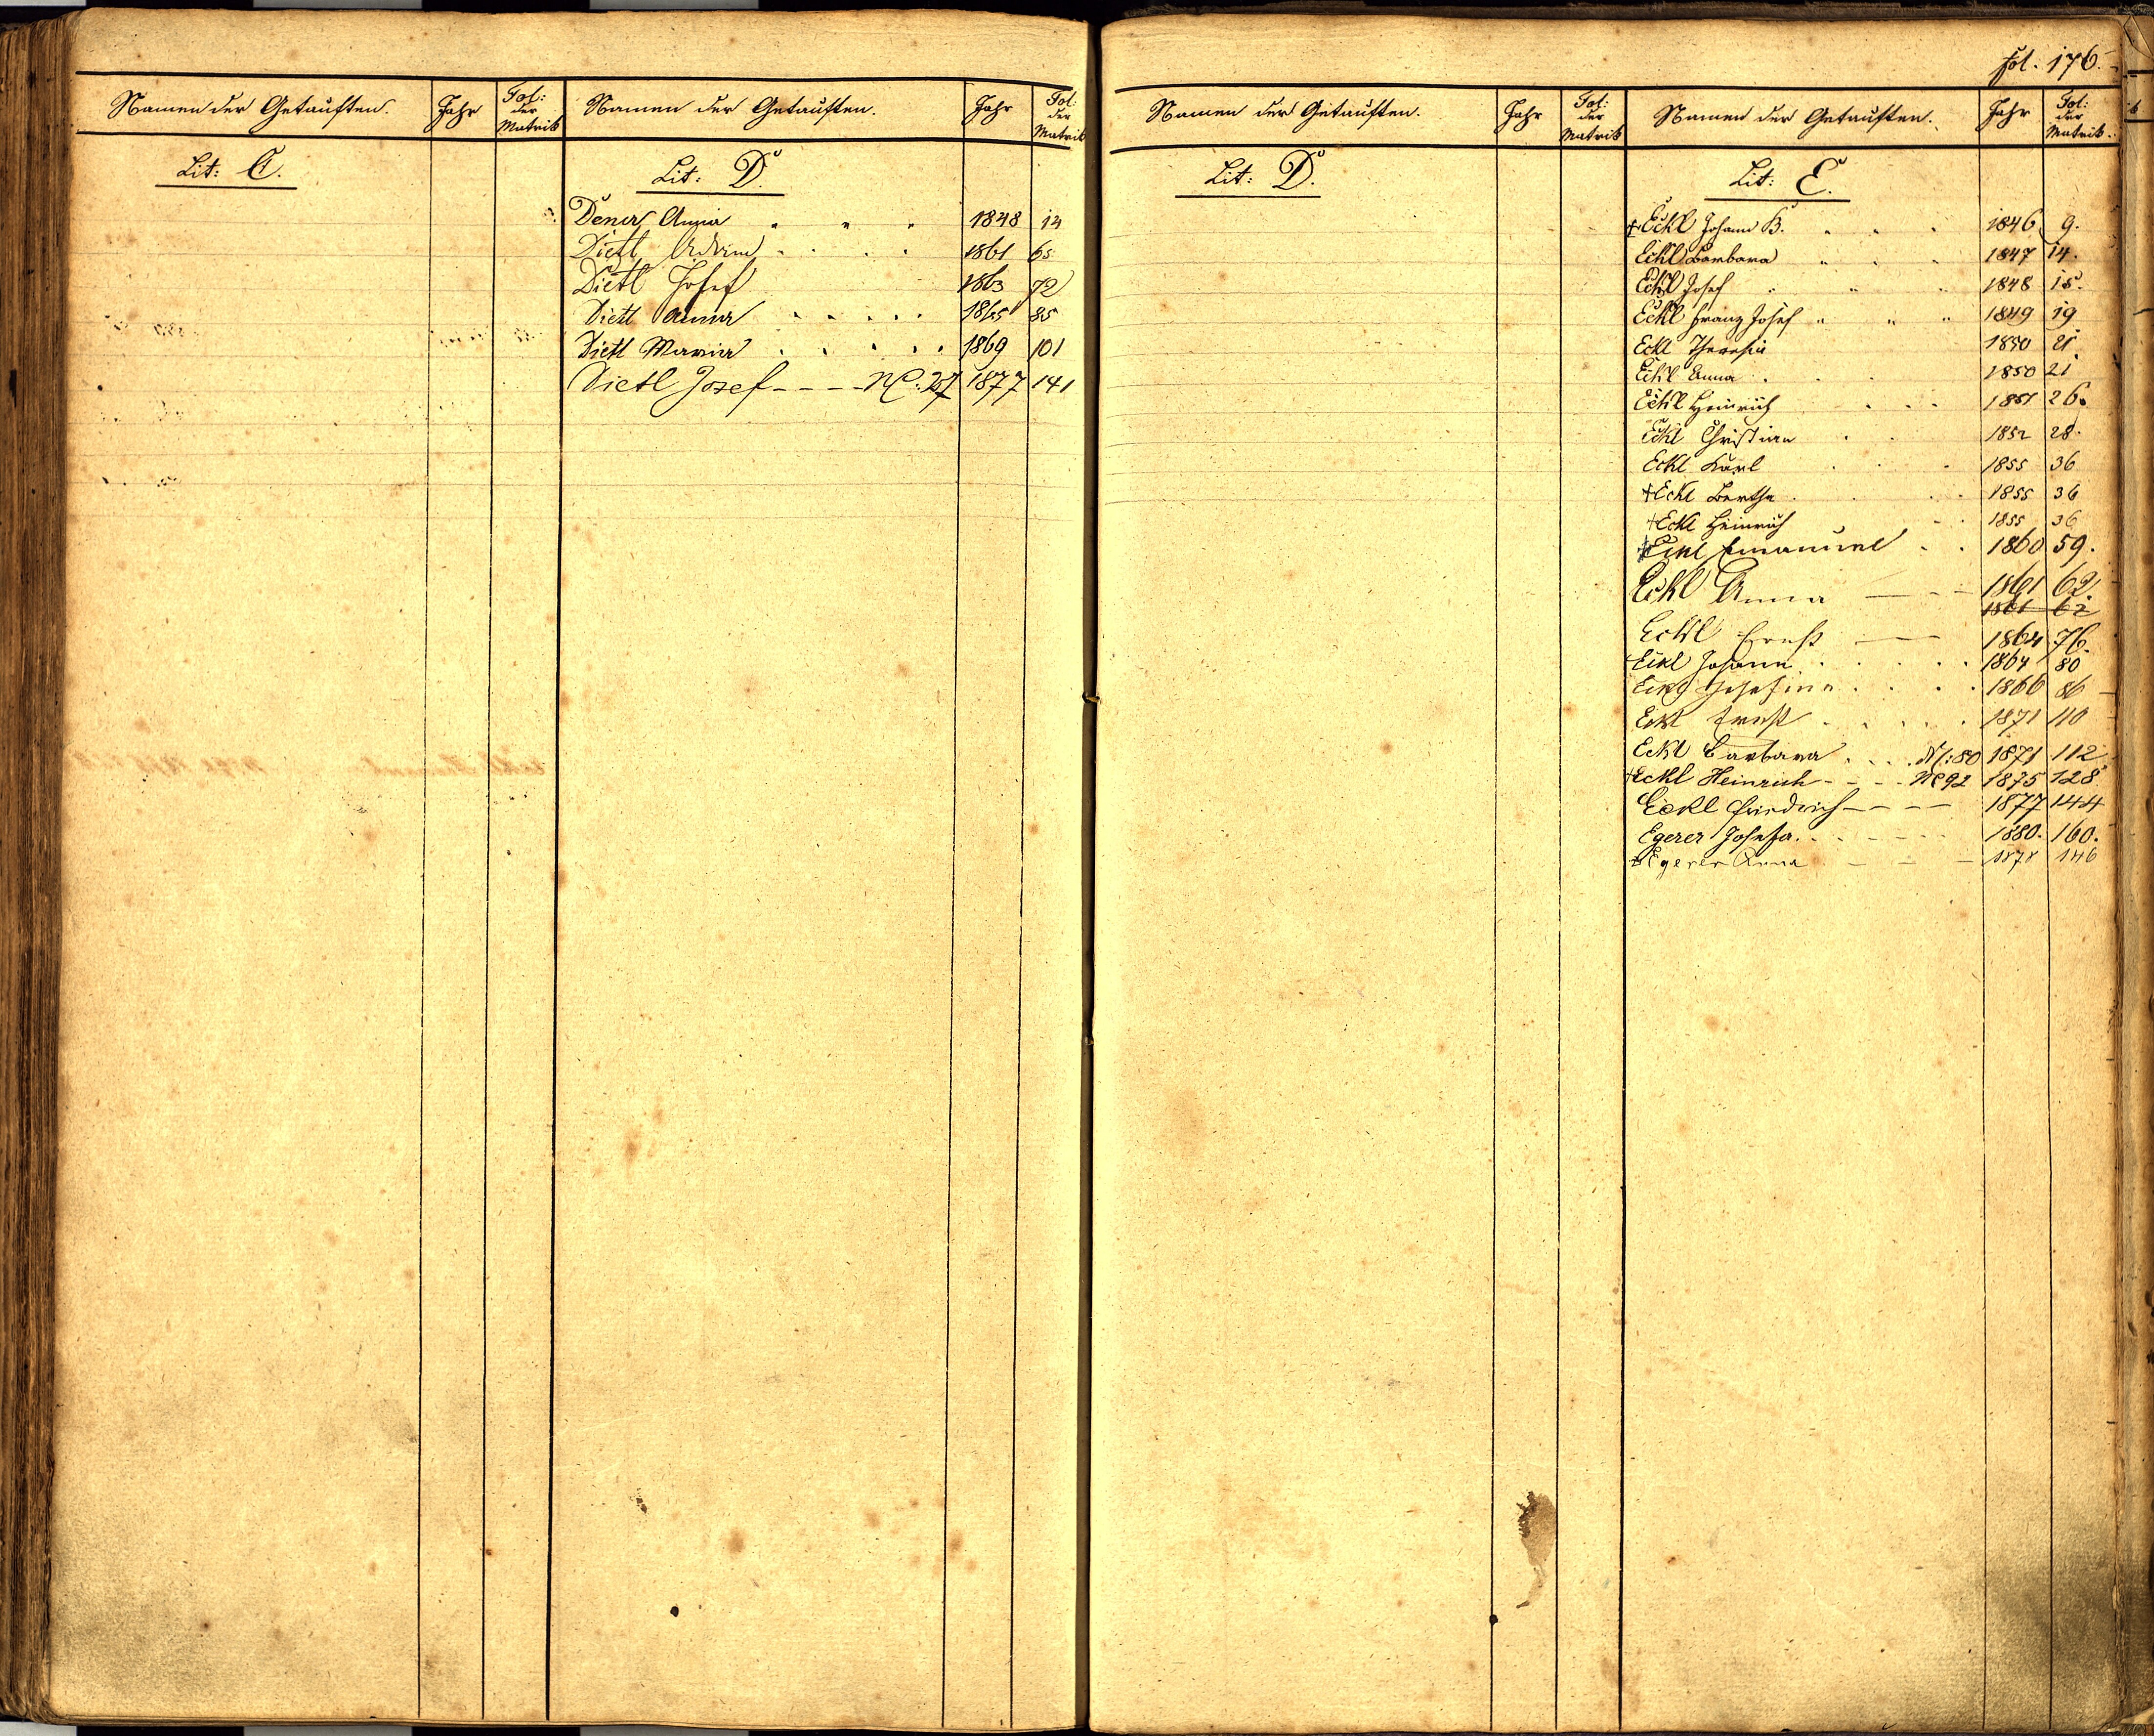 fol. 176.
Namen der Getauften. Jahr Fol: der Matrik
Lit: C.
Namen der Getauften. Jahr Fol: der Matrik
Lit: D.
Anna 1848 14
Dietl 1861 65
Dietl Josef 1863 72
Dietl Anna 1865 85
Dietl Maria 1869 101
Dietl Josef NC: 257 1877 141
Namen der Getauften. Jahr Fol: der Matrik
Lit: D.
Namen der Getauften. Jahr Fol: der Matrik.
Lit: E.
+ Eckl Johann B. 1846 9.
Eckl Barbara 1847 14.
Eckl Josef 1848 15.
Eckl Franz Josef 1849 19
Eckl Theresia 1850 21
Eckl Anna 1850 21
Eckl Heinrich 1851 26.
Eckl Christian 1852 28.
Eckl Karl 1855 36
+ Eckl Bertha 1855 36
+ Eckl Heinrich 1855 36
+ Eckl Emanuel 1860 59.
Eckl Anna 1861 62.
1861 62
Eckl Ernst 1864 76.
Eckl Johann 1864 80
Eckl Josefine 1866 86
Eckl Ernst 1871 110
Eckl Barbara NC: 80 1871 112
+ Eckl Heinrich NC 92 1875 128
Eckl Friedrich 1877 144
Egerer Josefa. 1880. 160.
+ Egerer Anna 1878 146